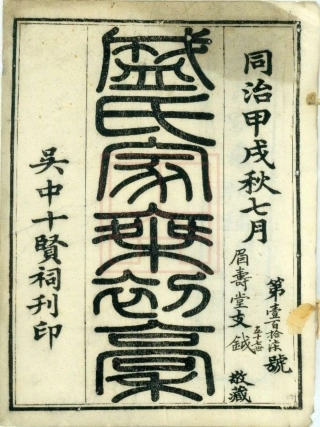 同治甲戌秋七月
第壹百拾柒號
眉壽堂支五十七世鉞敬藏
盛氏家乘初稾
吳中十賢祠刊印